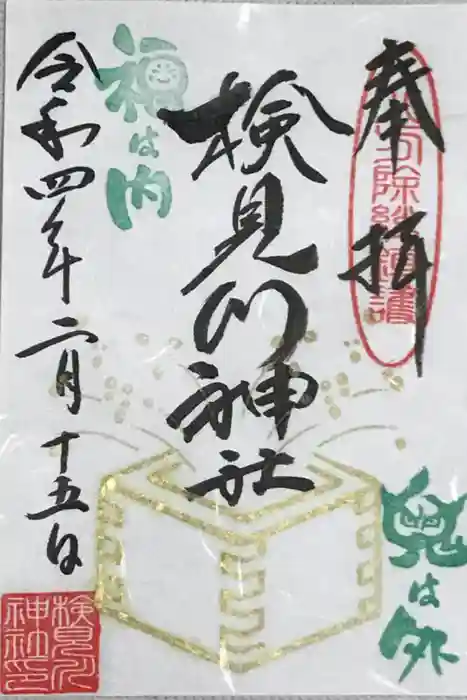 奉拝
検見川神社
福は内
令和四年二月十五日
鬼は外
検見川
神社印